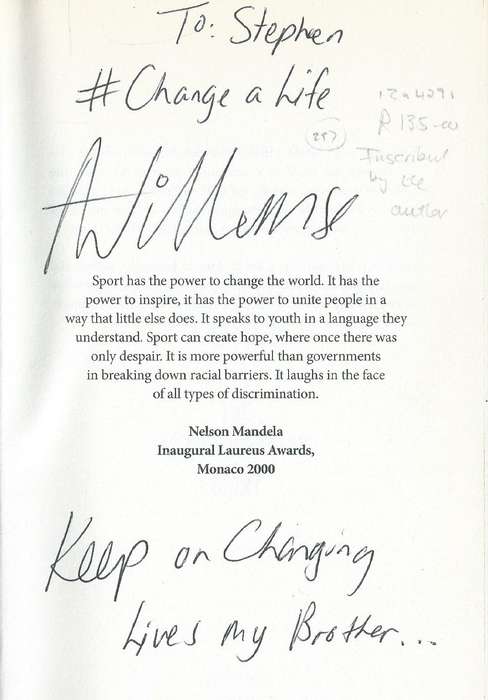 To: Stephen
# Change a Life
12a4291
R 135-00
(257)
Inscribed
by the
author
AWillemse
Sport has the power to change the world. It has the
power to inspire, it has the power to unite people in a
way that little else does. It speaks to youth in a language they
understand. Sport can create hope, where once there was
only despair. It is more powerful than governments
in breaking down racial barriers. It laughs in the face
of all types of discrimination.
Nelson Mandela
Inaugural Laureus Awards,
Monaco 2000
Keep on Changing
Lives my Brother...